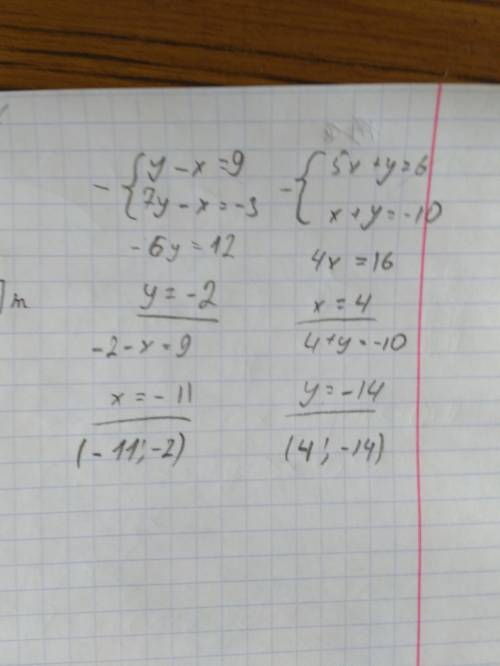 - { y - x = 9
7y - x = -3
-6y = 12
y = -2
-2 - x = 9
x = -11
(-11; -2)
- { 5x + y = 6
x + y = -10
4x = 16
x = 4
4 + y = -10
y = -14
(4; -14)
] m